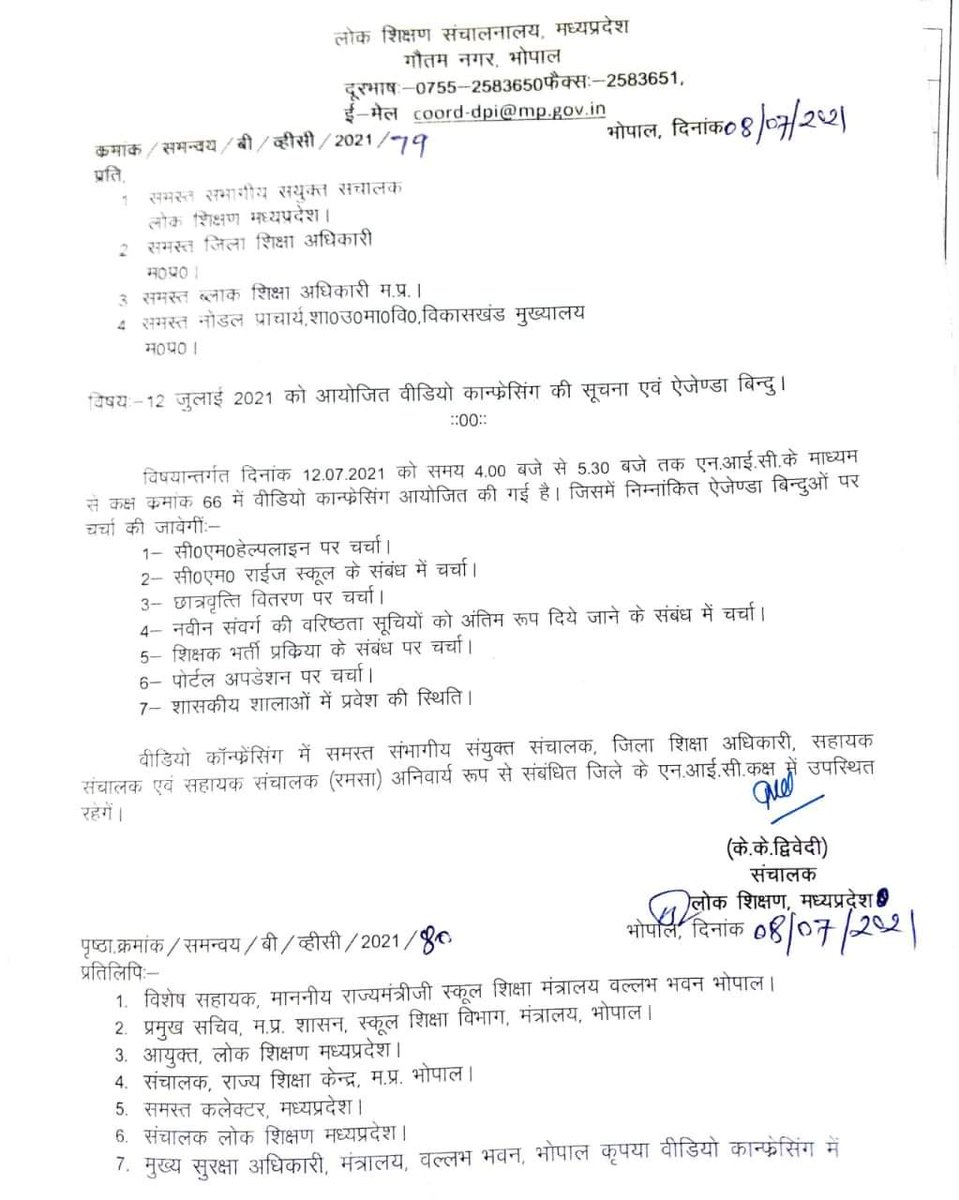 लोक शिक्षण संचालनालय, मध्यप्रदेश
गौतम नगर, भोपाल
दूरभाषः–0755–2583650फैक्सः–2583651,
ई–मेल coord-dpi@mp.gov.in
भोपाल, दिनांक 08/07/2021
कमांक / समन्वय / बी / व्हीसी / 2021 / 79
प्रति,
1 समस्त सभागीय सयुक्त सचालक
लोक शिक्षण मध्यप्रदेश।
2 समस्त जिला शिक्षा अधिकारी
म0प्र0।
3 समस्त ब्लाक शिक्षा अधिकारी म.प्र.।
4 समस्त नोडल प्राचार्य,शा0उ0मा0वि0,विकासखंड मुख्यालय
म0प्र0।
विषयः–12 जुलाई 2021 को आयोजित वीडियो कान्फ्रेसिंग की सूचना एवं ऐजेण्डा बिन्दु।
::00::
विषयान्तर्गत दिनांक 12.07.2021 को समय 4.00 बजे से 5.30 बजे तक एन.आई.सी.के माध्यम
से कक्ष कमांक 66 में वीडियो कान्फ्रेसिंग आयोजित की गई है। जिसमें निम्नांकित ऐजेण्डा बिन्दुओं पर
चर्चा की जावेगींः–
1– सी0एम0हेल्पलाइन पर चर्चा।
2– सी0एम0 राईज स्कूल के संबंध में चर्चा।
3– छात्रवृत्ति वितरण पर चर्चा।
4– नवीन संवर्ग की वरिष्ठता सूचियों को अंतिम रूप दिये जाने के संबंध में चर्चा।
5– शिक्षक भर्ती प्रकिया के संबंध पर चर्चा।
6– पोर्टल अपडेशन पर चर्चा।
7– शासकीय शालाओं में प्रवेश की स्थिति।
वीडियो कॉन्फ्रेंसिंग में समस्त संभागीय संयुक्त संचालक, जिला शिक्षा अधिकारी, सहायक
संचालक एवं सहायक संचालक (रमसा) अनिवार्य रूप से संबंधित जिले के एन.आई.सी.कक्ष में उपस्थित
रहेगें।
(के.के.द्विवेदी)
संचालक
लोक शिक्षण, मध्यप्रदेश
भोपाल, दिनांक 08/07/2021
पृष्ठा.कमांक / समन्वय / बी / व्हीसी / 2021 / 80
प्रतिलिपिः–
1. विशेष सहायक, माननीय राज्यमंत्रीजी स्कूल शिक्षा मंत्रालय वल्लभ भवन भोपाल।
2. प्रमुख सचिव, म.प्र. शासन, स्कूल शिक्षा विभाग, मंत्रालय, भोपाल।
3. आयुक्त, लोक शिक्षण मध्यप्रदेश।
4. संचालक, राज्य शिक्षा केन्द्र, म.प्र. भोपाल।
5. समस्त कलेक्टर, मध्यप्रदेश।
6. संचालक लोक शिक्षण मध्यप्रदेश।
7. मुख्य सुरक्षा अधिकारी, मंत्रालय, वल्लभ भवन, भोपाल कृपया वीडियो कान्फ्रेसिंग में